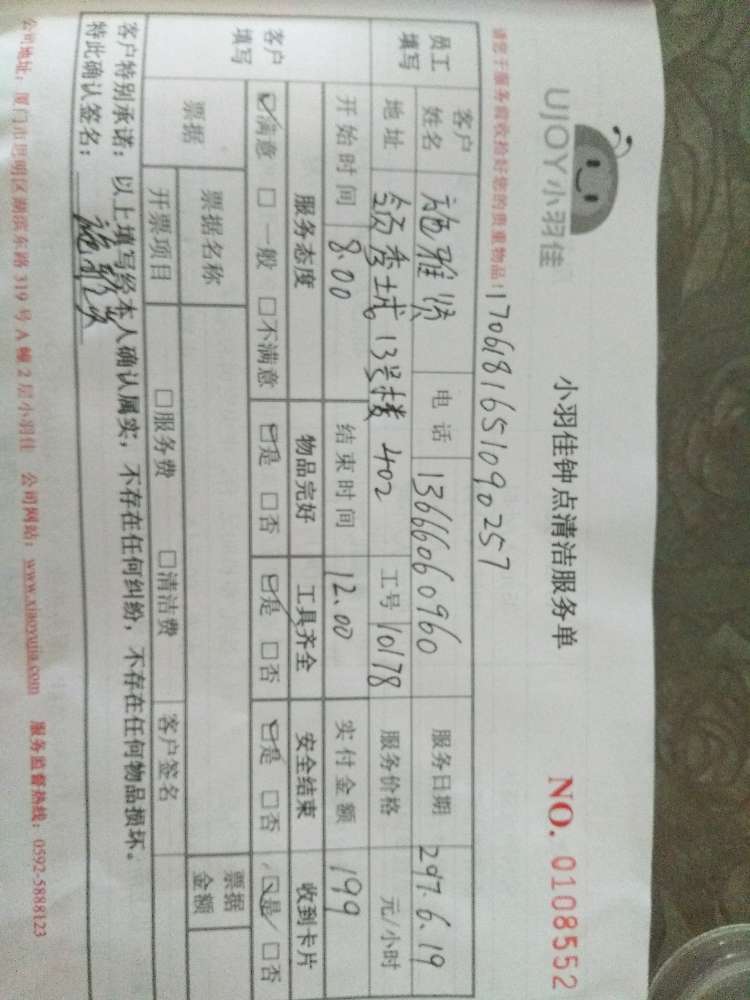 UJOY小羽佳
小羽佳钟点清洁服务单
NO. 0108552
请您于服务前收拾好您的贵重物品！
1706181651090257
员工填写
客户姓名
施雅
电话
13666060960
服务日期
2017.6.19
地址
秀城13号楼402
工号
10178
服务价格
元/小时
开始时间
8.00
结束时间
12.00
实付金额
199
客户填写
服务态度
物品完好
工具齐全
安全结束
收到卡片
☑满意 □一般 □不满意
☑是 □否
☑是 □否
☑是 □否
☑是 □否
票据
票据名称
票据金额
开票项目
□服务费 □清洁费
客户签名
客户特别承诺：以上填写经本人确认属实，不存在任何纠纷，不存在任何物品损坏。
特此确认签名：
公司地址：厦门市思明区湖滨东路319号A幢2层小羽佳 公司网站：www.xiaoyujia.com 服务监督热线：0592-5888123